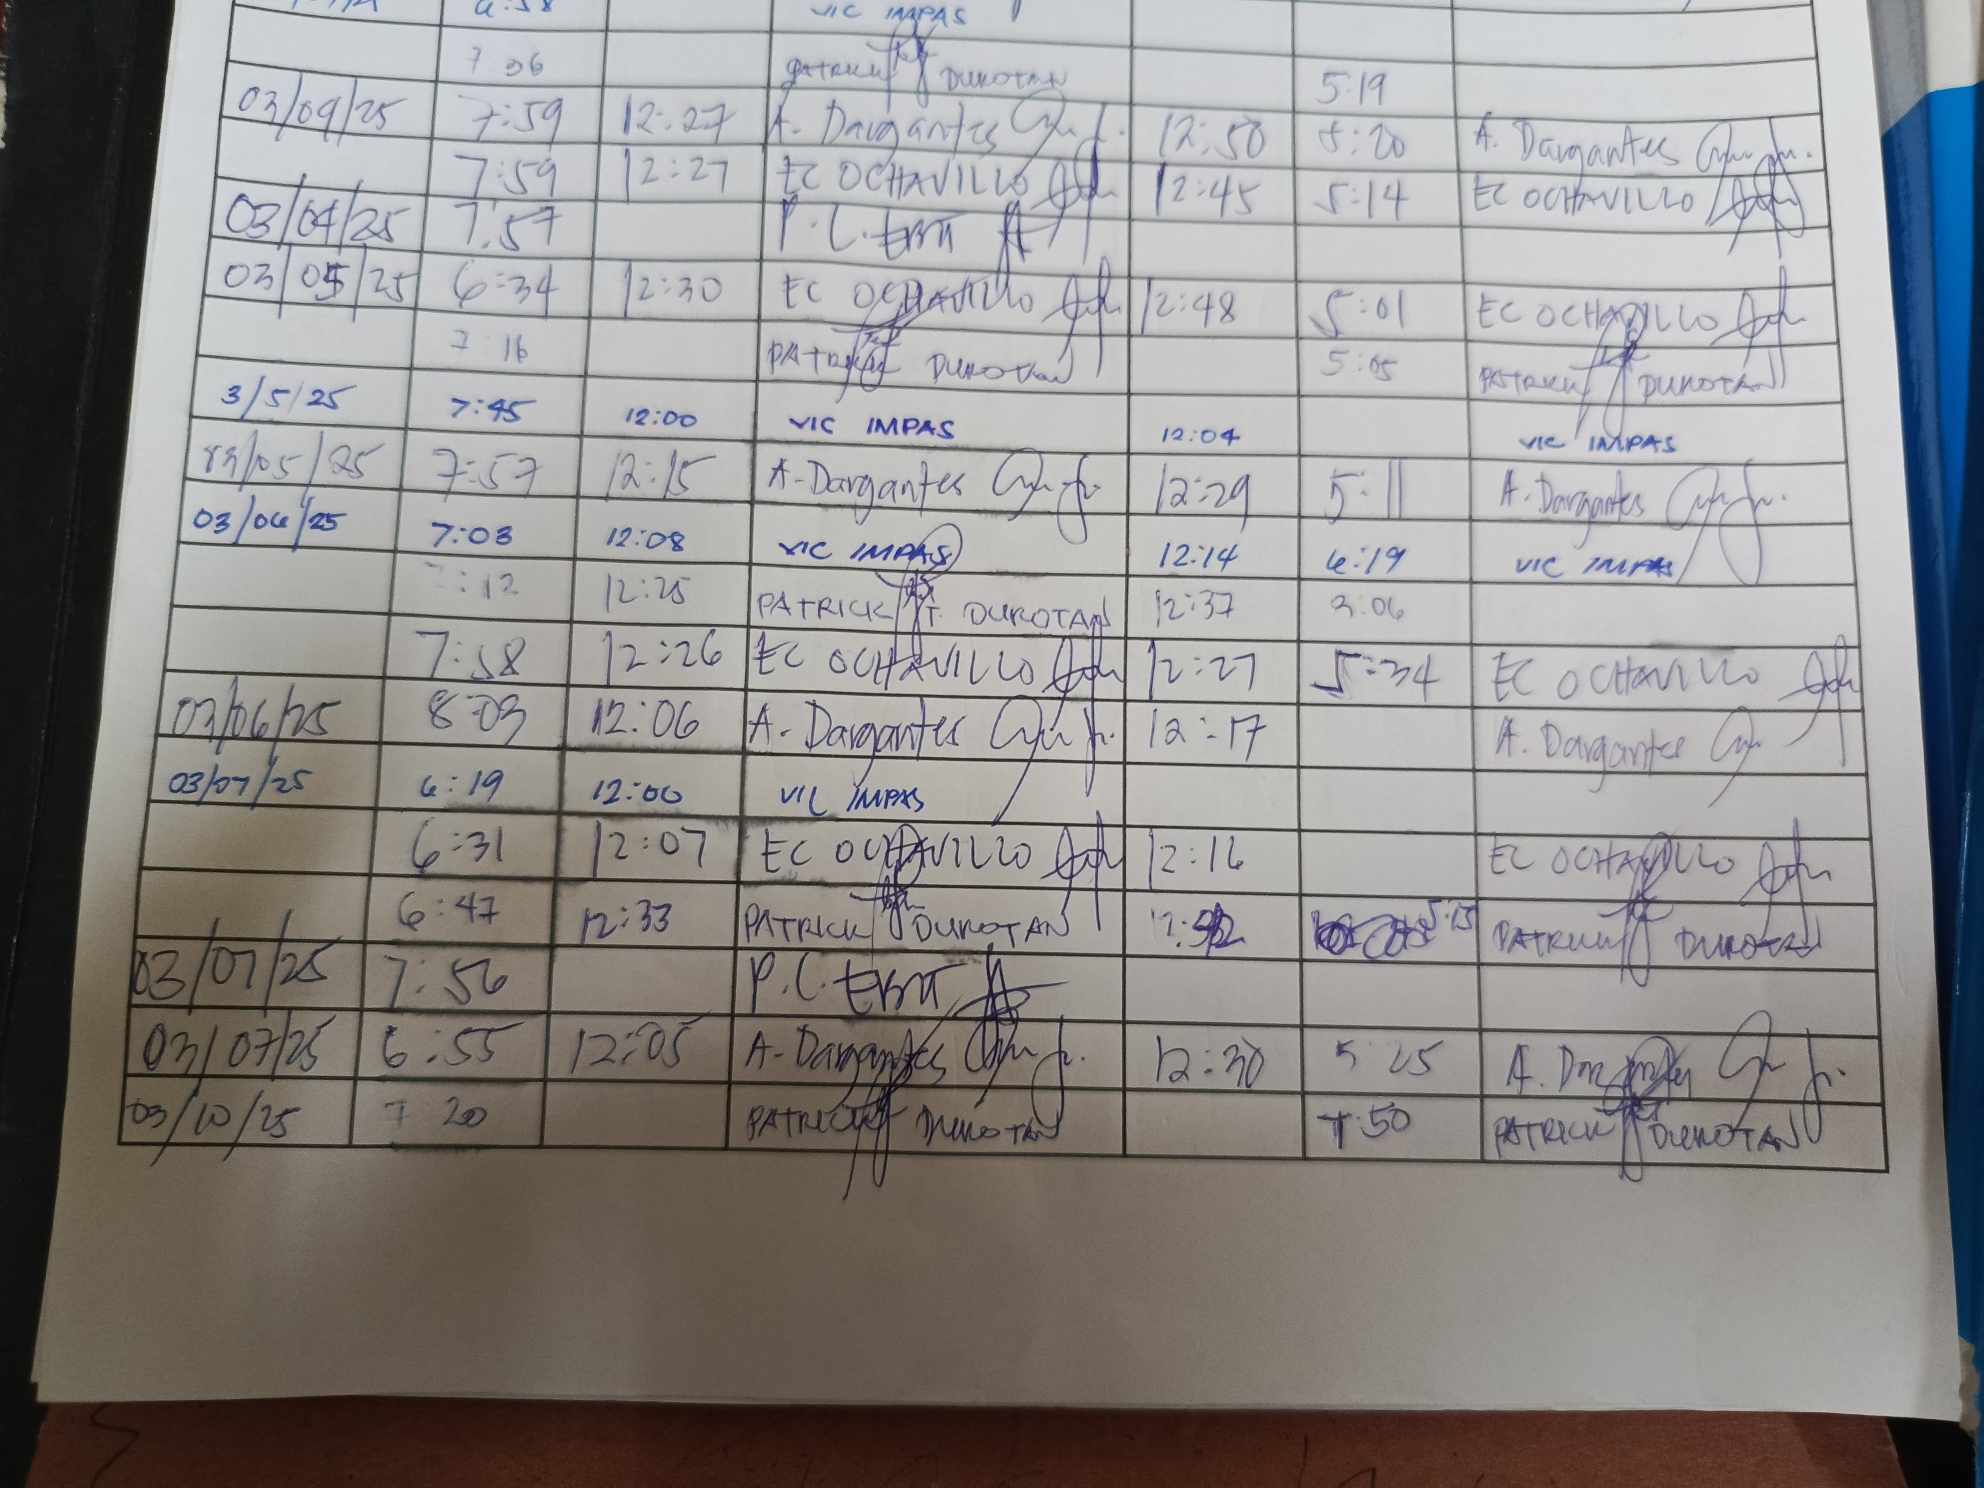 6:58 VIC IMPAS
7 36 PATRICK DUROTAN 5:19
03/04/25 7:59 12:27 A. Dargantes 12:50 5:20 A. Dargantes
7:59 12:27 EC OCHAVILLO 12:45 5:14 EC OCHAVILLO
03/04/25 7:57 P.C.
03/05/25 6:34 12:30 EC OCHAVILLO 12:48 5:01 EC OCHAVILLO
7 16 PATRICK DUROTAN 5:05 PATRICK DUROTAN
3/5/25 7:45 12:00 VIC IMPAS 12:04 VIC IMPAS
03/05/25 7:57 12:15 A. Dargantes 12:29 5:11 A. Dargantes
03/06/25 7:03 12:08 VIC IMPAS 12:14 6:19 VIC IMPAS
:12 12:25 PATRICK T. DUROTAN 12:37 3:06
7:58 12:26 EC OCHAVILLO 12:27 5:34 EC OCHAVILLO
03/06/25 8:03 12:06 A. Dargantes 12:17 A. Dargantes
03/07/25 6:19 12:00 VIC IMPAS
6:31 12:07 EC OCHAVILLO 12:16 EC OCHAVILLO
6:47 12:33 PATRICK DUROTAN 5:15 PATRICK DUROTAN
03/07/25 7:56 P.C.
03/07/25 6:55 12:05 A. Dargantes 12:30 5:25 A. Dargantes
03/10/25 7 20 PATRICK DUROTAN :50 PATRICK DUROTAN